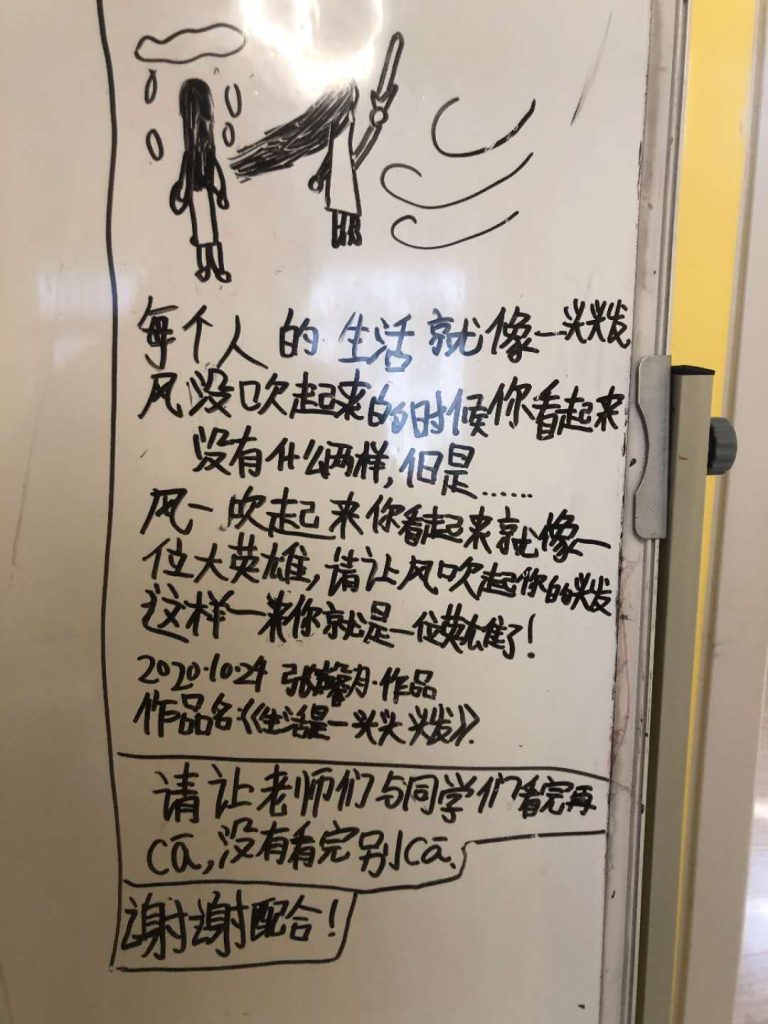 每个人的生活就像一头头发
风没吹起来的的时候你看起来
没有什么两样,但是……
风一吹起来你看起来就像一
位大英雄,请让风吹起你的头发
这样一来你就是一位英雄了!
2020.10.24 张馨月·作品
作品名:《生活是一头头头发》.
请让老师们与同学们看完再
cā,没有看完别cā.
谢谢配合!